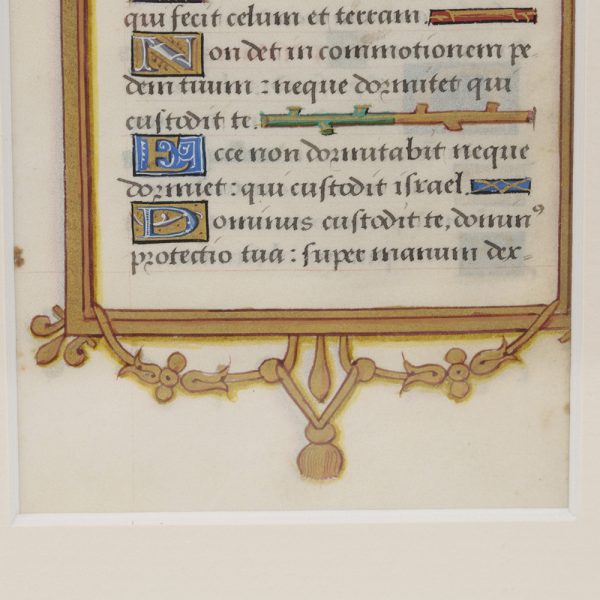 qui fecit celum et terram.
Non det in commotionem pe-
dem tuum : neque dormitet qui
custodit te.
Ecce non dormitabit neque
dormiet : qui custodit israel.
Dominus custodit te, dominꝰ
protectio tua : super manum dex-